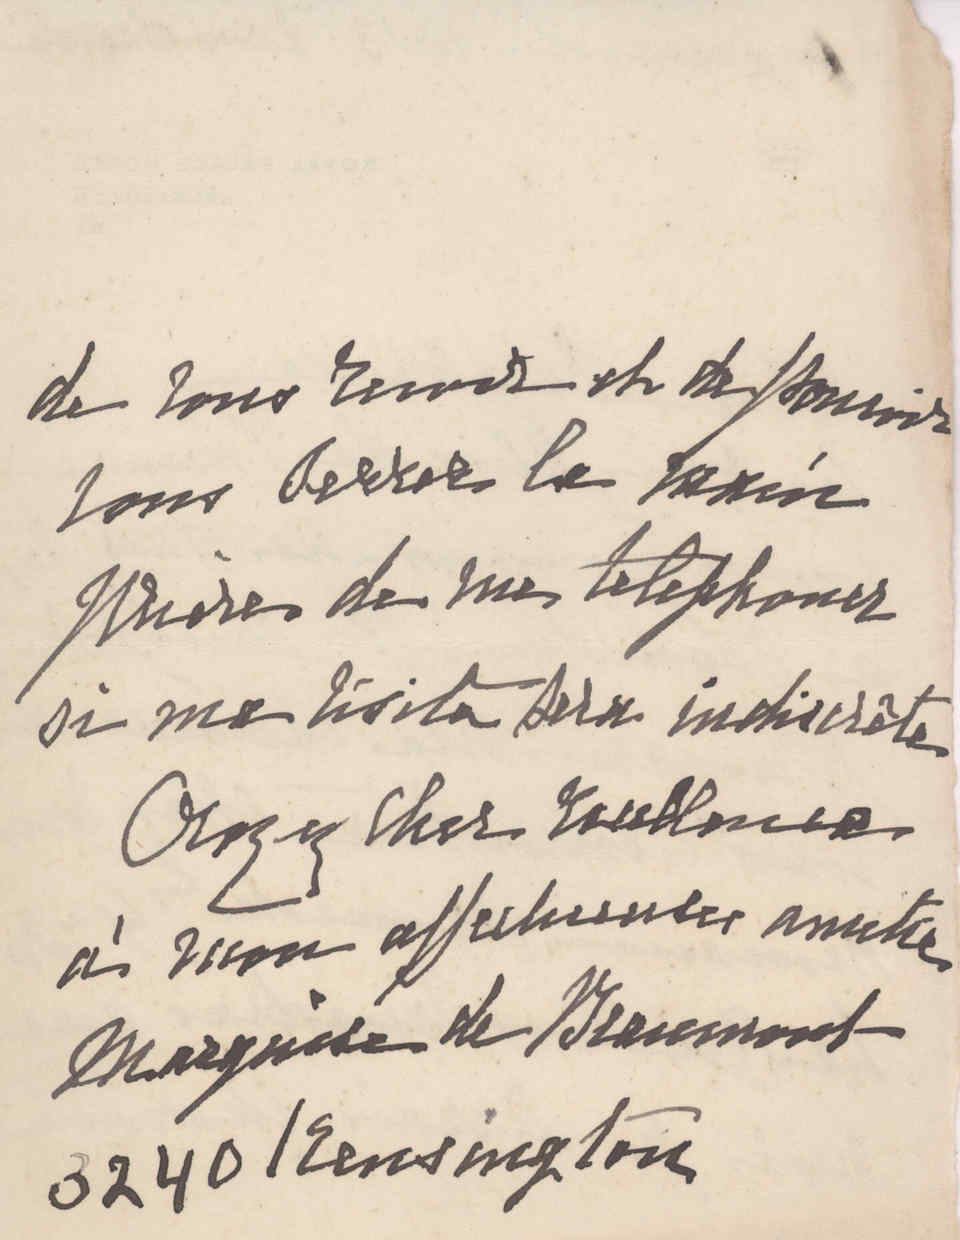 de vous revoir et de pouvoir
vous serrer la main
prière de me telephoner
si ma visite sera indiscrète
Croyez cher excellence
à mon affectueuse amitie
Marquise de Beaumont
3240 Kensington